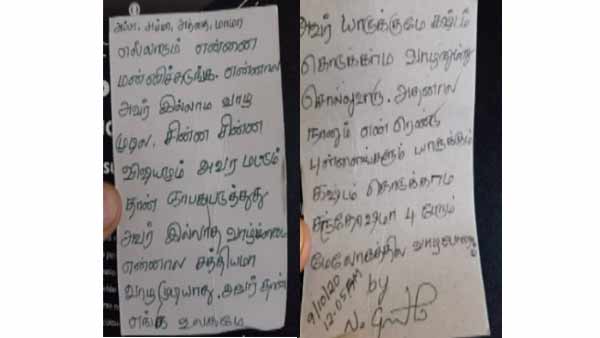 அப்பா, அம்மா, அத்தை, மாமா
எல்லாரும் என்னை
மன்னிச்சிடுங்க. என்னால
அவர் இல்லாம வாழ
முடில. சின்ன சின்ன
விஷயமும் அவர மட்டும்
தான் ஞாபகபடுத்துது
அவர் இல்லாத வாழ்க்கைய
என்னால சத்தியமா
வாழ முடியாது. அவர் தான்
எங்க உலகமே
அவர் யாருக்குமே கஷ்டம்
கொடுக்காம வாழனும்னு
சொல்லுவாரு. அதனால
நானும் என் ரெண்டு
புள்ளைங்களும் யாருக்கும்
கஷ்டம் கொடுக்காம
சந்தோஷமா 4 பேரும்
மேலோகத்தில வாழபோறோம்
by
9/10/20
12.05AM